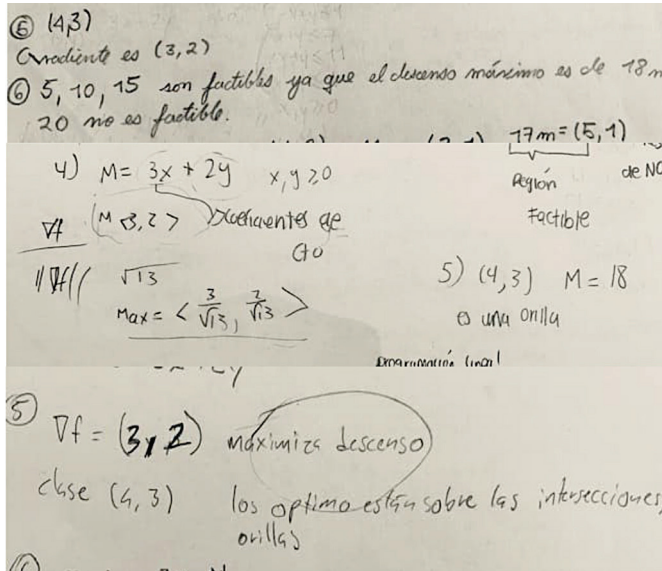 ⑤ (4,3)
Gradiente es (3,2)
⑥ 5, 10, 15 son factibles ya que el descenso máximo es de 18 m
20 no es factible.
17m = (5,1)
Región de NO
Factible
4) M = 3x + 2y x, y ≥ 0
∇f (M <3,2> coeficientes de
Go
||∇f|| √13
Max = < 3/√13, 2/√13 >
5) (4,3) M = 18
o una orilla
Programación lineal
⑤ ∇f = (3,2) maximiza descenso
clase (4,3) los optimo están sobre las intersecciones,
orillas